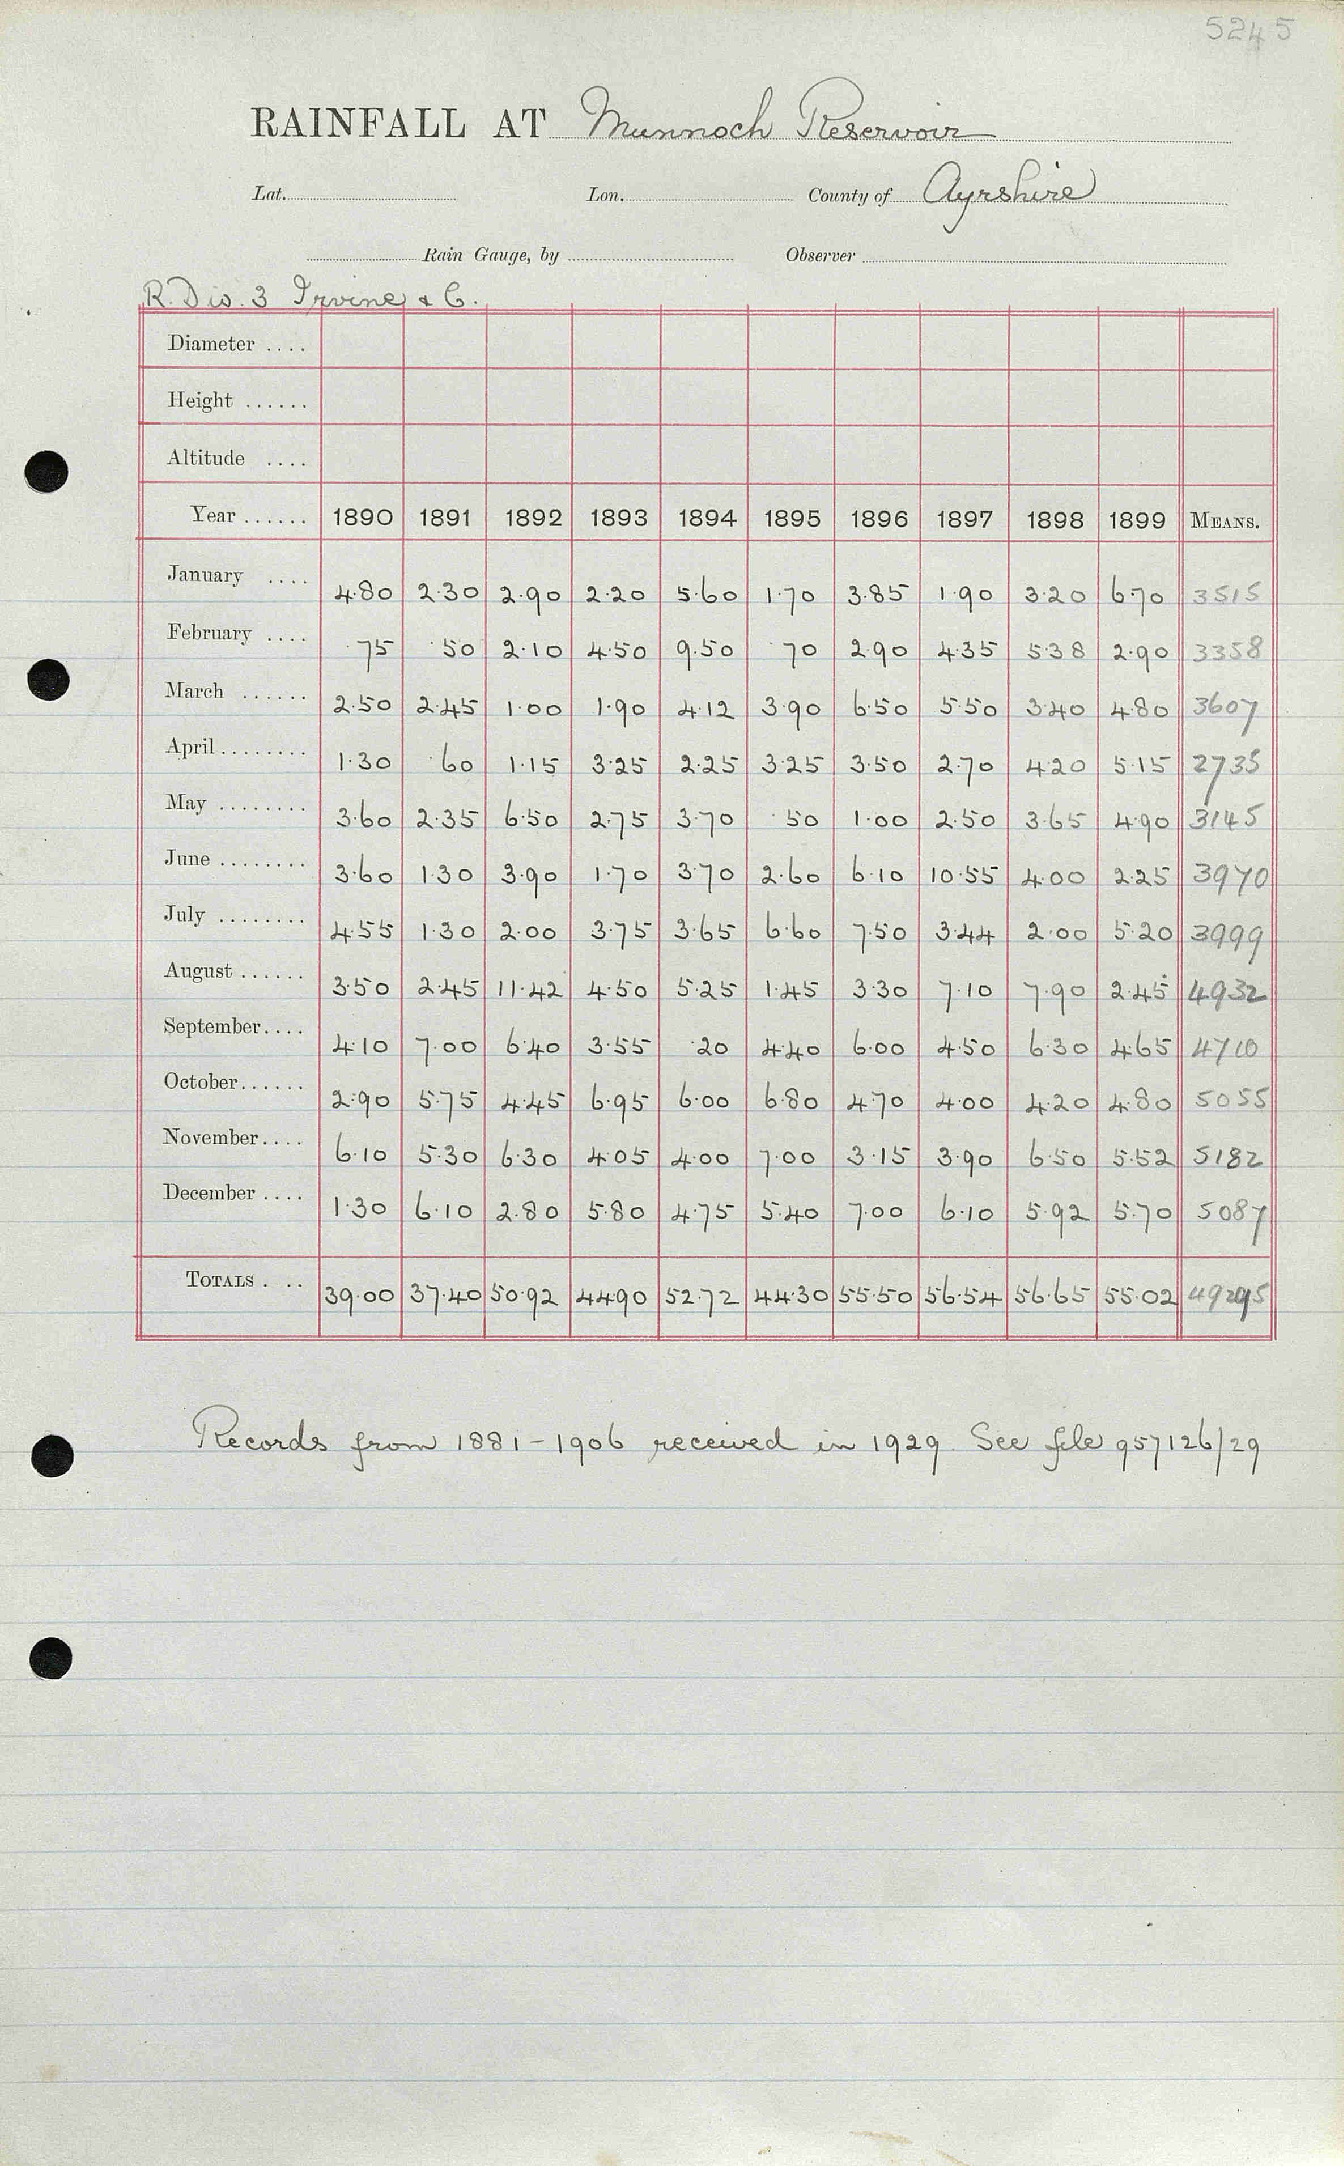 5245
RAINFALL AT Munnoch Reservoir
Lat. Lon. County of Ayrshire
Rain Gauge, by Observer
R. Div. 3 Irvine & C.
Diameter ....
Height ......
Altitude ....
Year ...... 1890 1891 1892 1893 1894 1895 1896 1897 1898 1899 MEANS.
January .... 4.80 2.30 2.90 2.20 5.60 1.70 3.85 1.90 3.20 6.70 3515
February .... .75 .50 2.10 4.50 9.50 .70 2.90 4.35 5.38 2.90 3358
March ...... 2.50 2.45 1.00 1.90 4.12 3.90 6.50 5.50 3.40 4.80 3607
April ........ 1.30 .60 1.15 3.25 2.25 3.25 3.50 2.70 4.20 5.15 2735
May ........ 3.60 2.35 6.50 2.75 3.70 .50 1.00 2.50 3.65 4.90 3145
June ........ 3.60 1.30 3.90 1.70 3.70 2.60 6.10 10.55 4.00 2.25 3970
July ........ 4.55 1.30 2.00 3.75 3.65 6.60 7.50 3.44 2.00 5.20 3999
August ...... 3.50 2.45 11.42 4.50 5.25 1.45 3.30 7.10 7.90 2.45 4932
September.... 4.10 7.00 6.40 3.55 .20 4.40 6.00 4.50 6.30 4.65 4710
October...... 2.90 5.75 4.45 6.95 6.00 6.80 4.70 4.00 4.20 4.80 5055
November.... 6.10 5.30 6.30 4.05 4.00 7.00 3.15 3.90 6.50 5.52 5182
December .... 1.30 6.10 2.80 5.80 4.75 5.40 7.00 6.10 5.92 5.70 5087
TOTALS . .. 39.00 37.40 50.92 44.90 52.72 44.30 55.50 56.54 56.65 55.02 49295
Records from 1881-1906 received in 1929. See file 957126/29